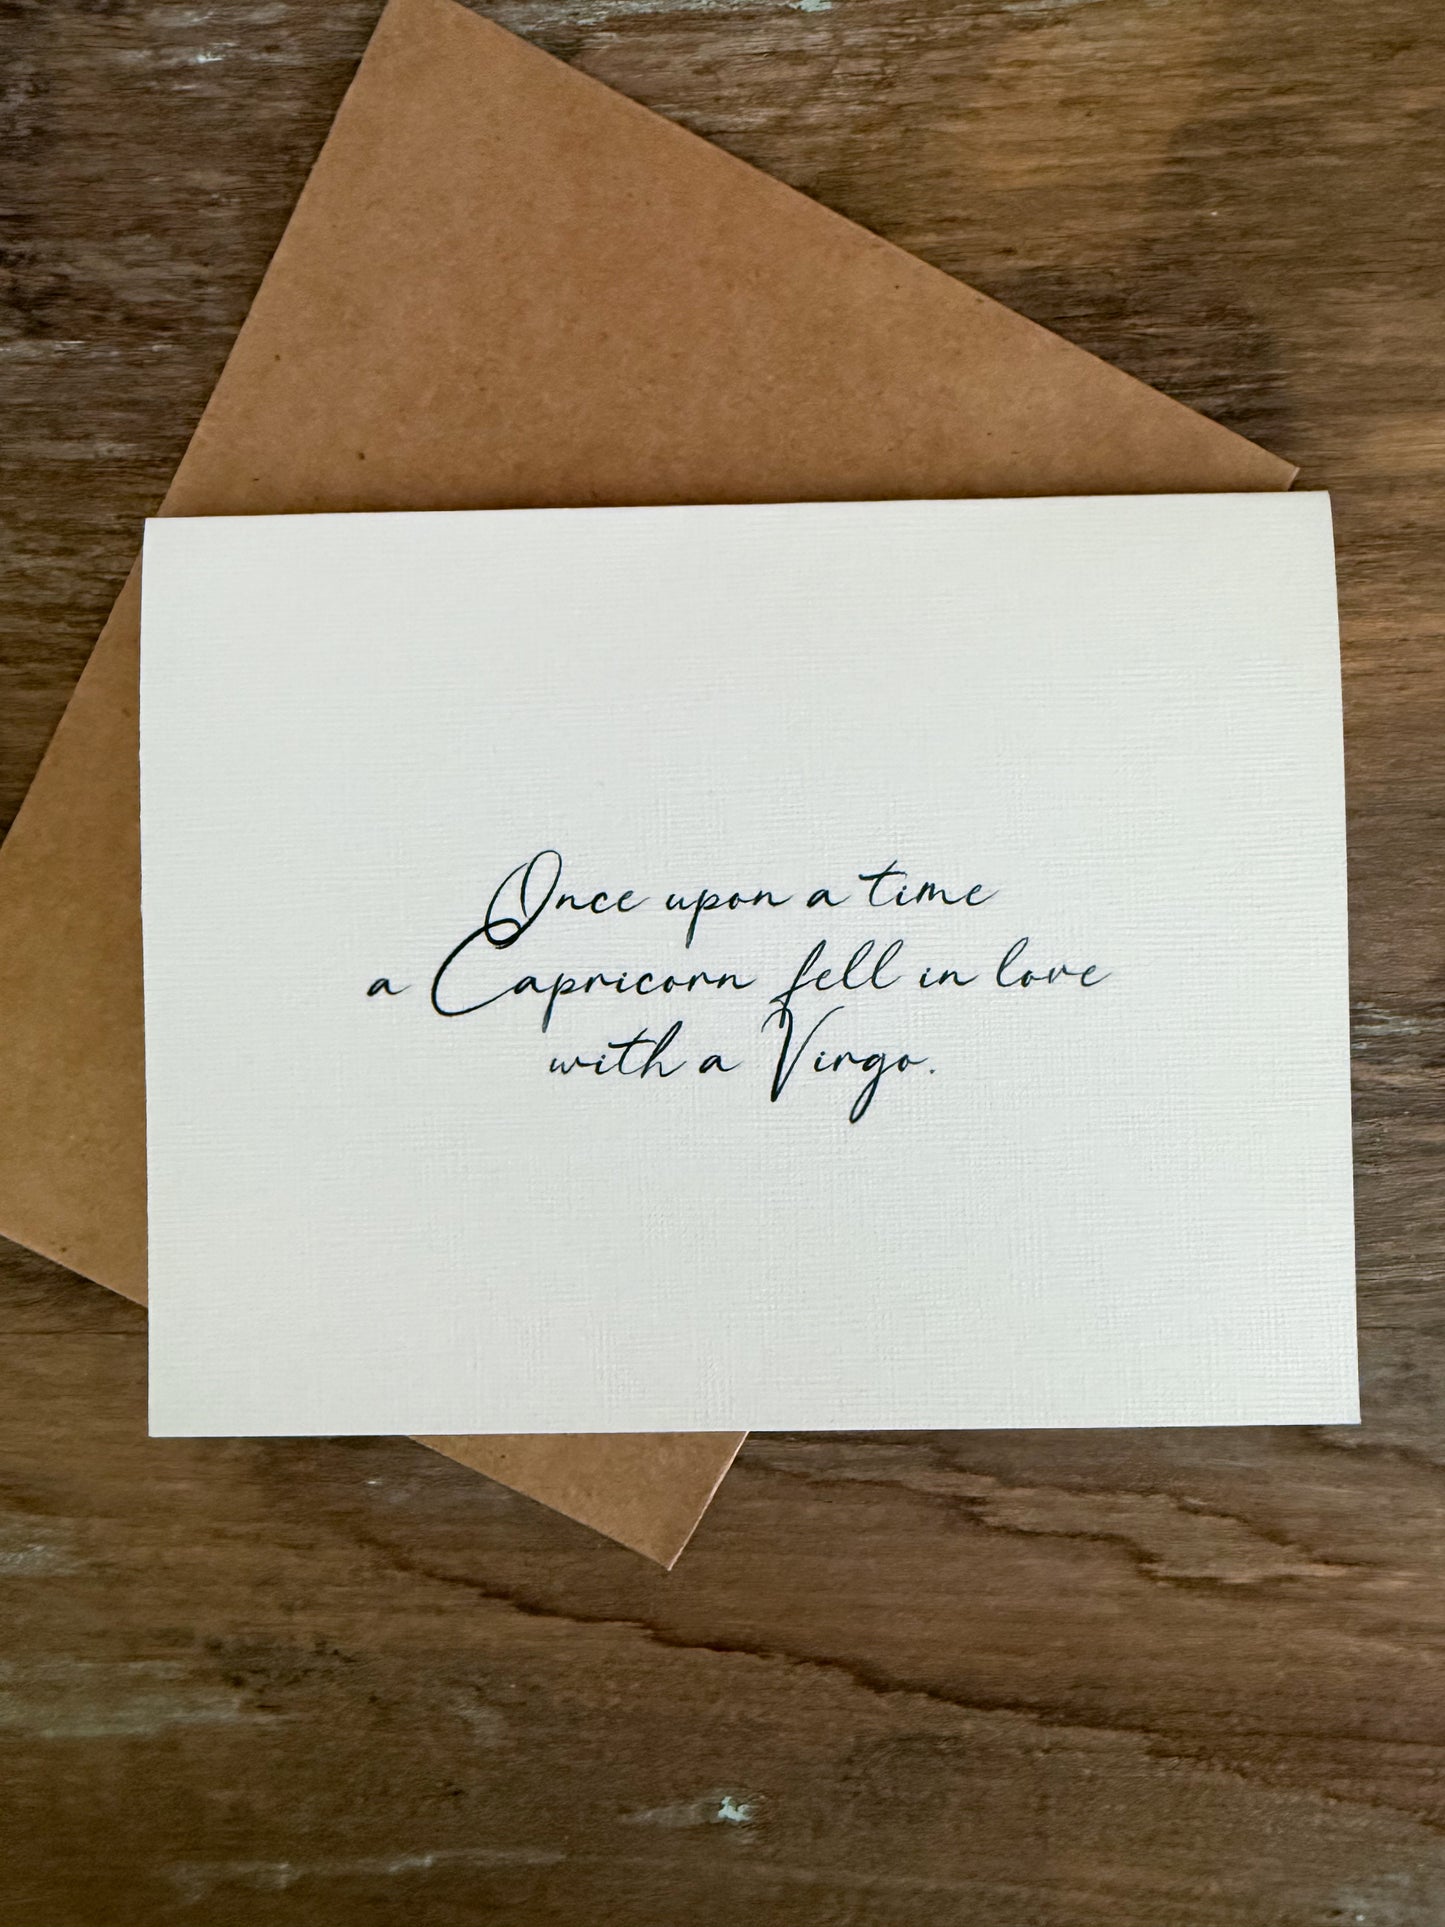 Once upon a time
a Capricorn fell in love
with a Virgo.